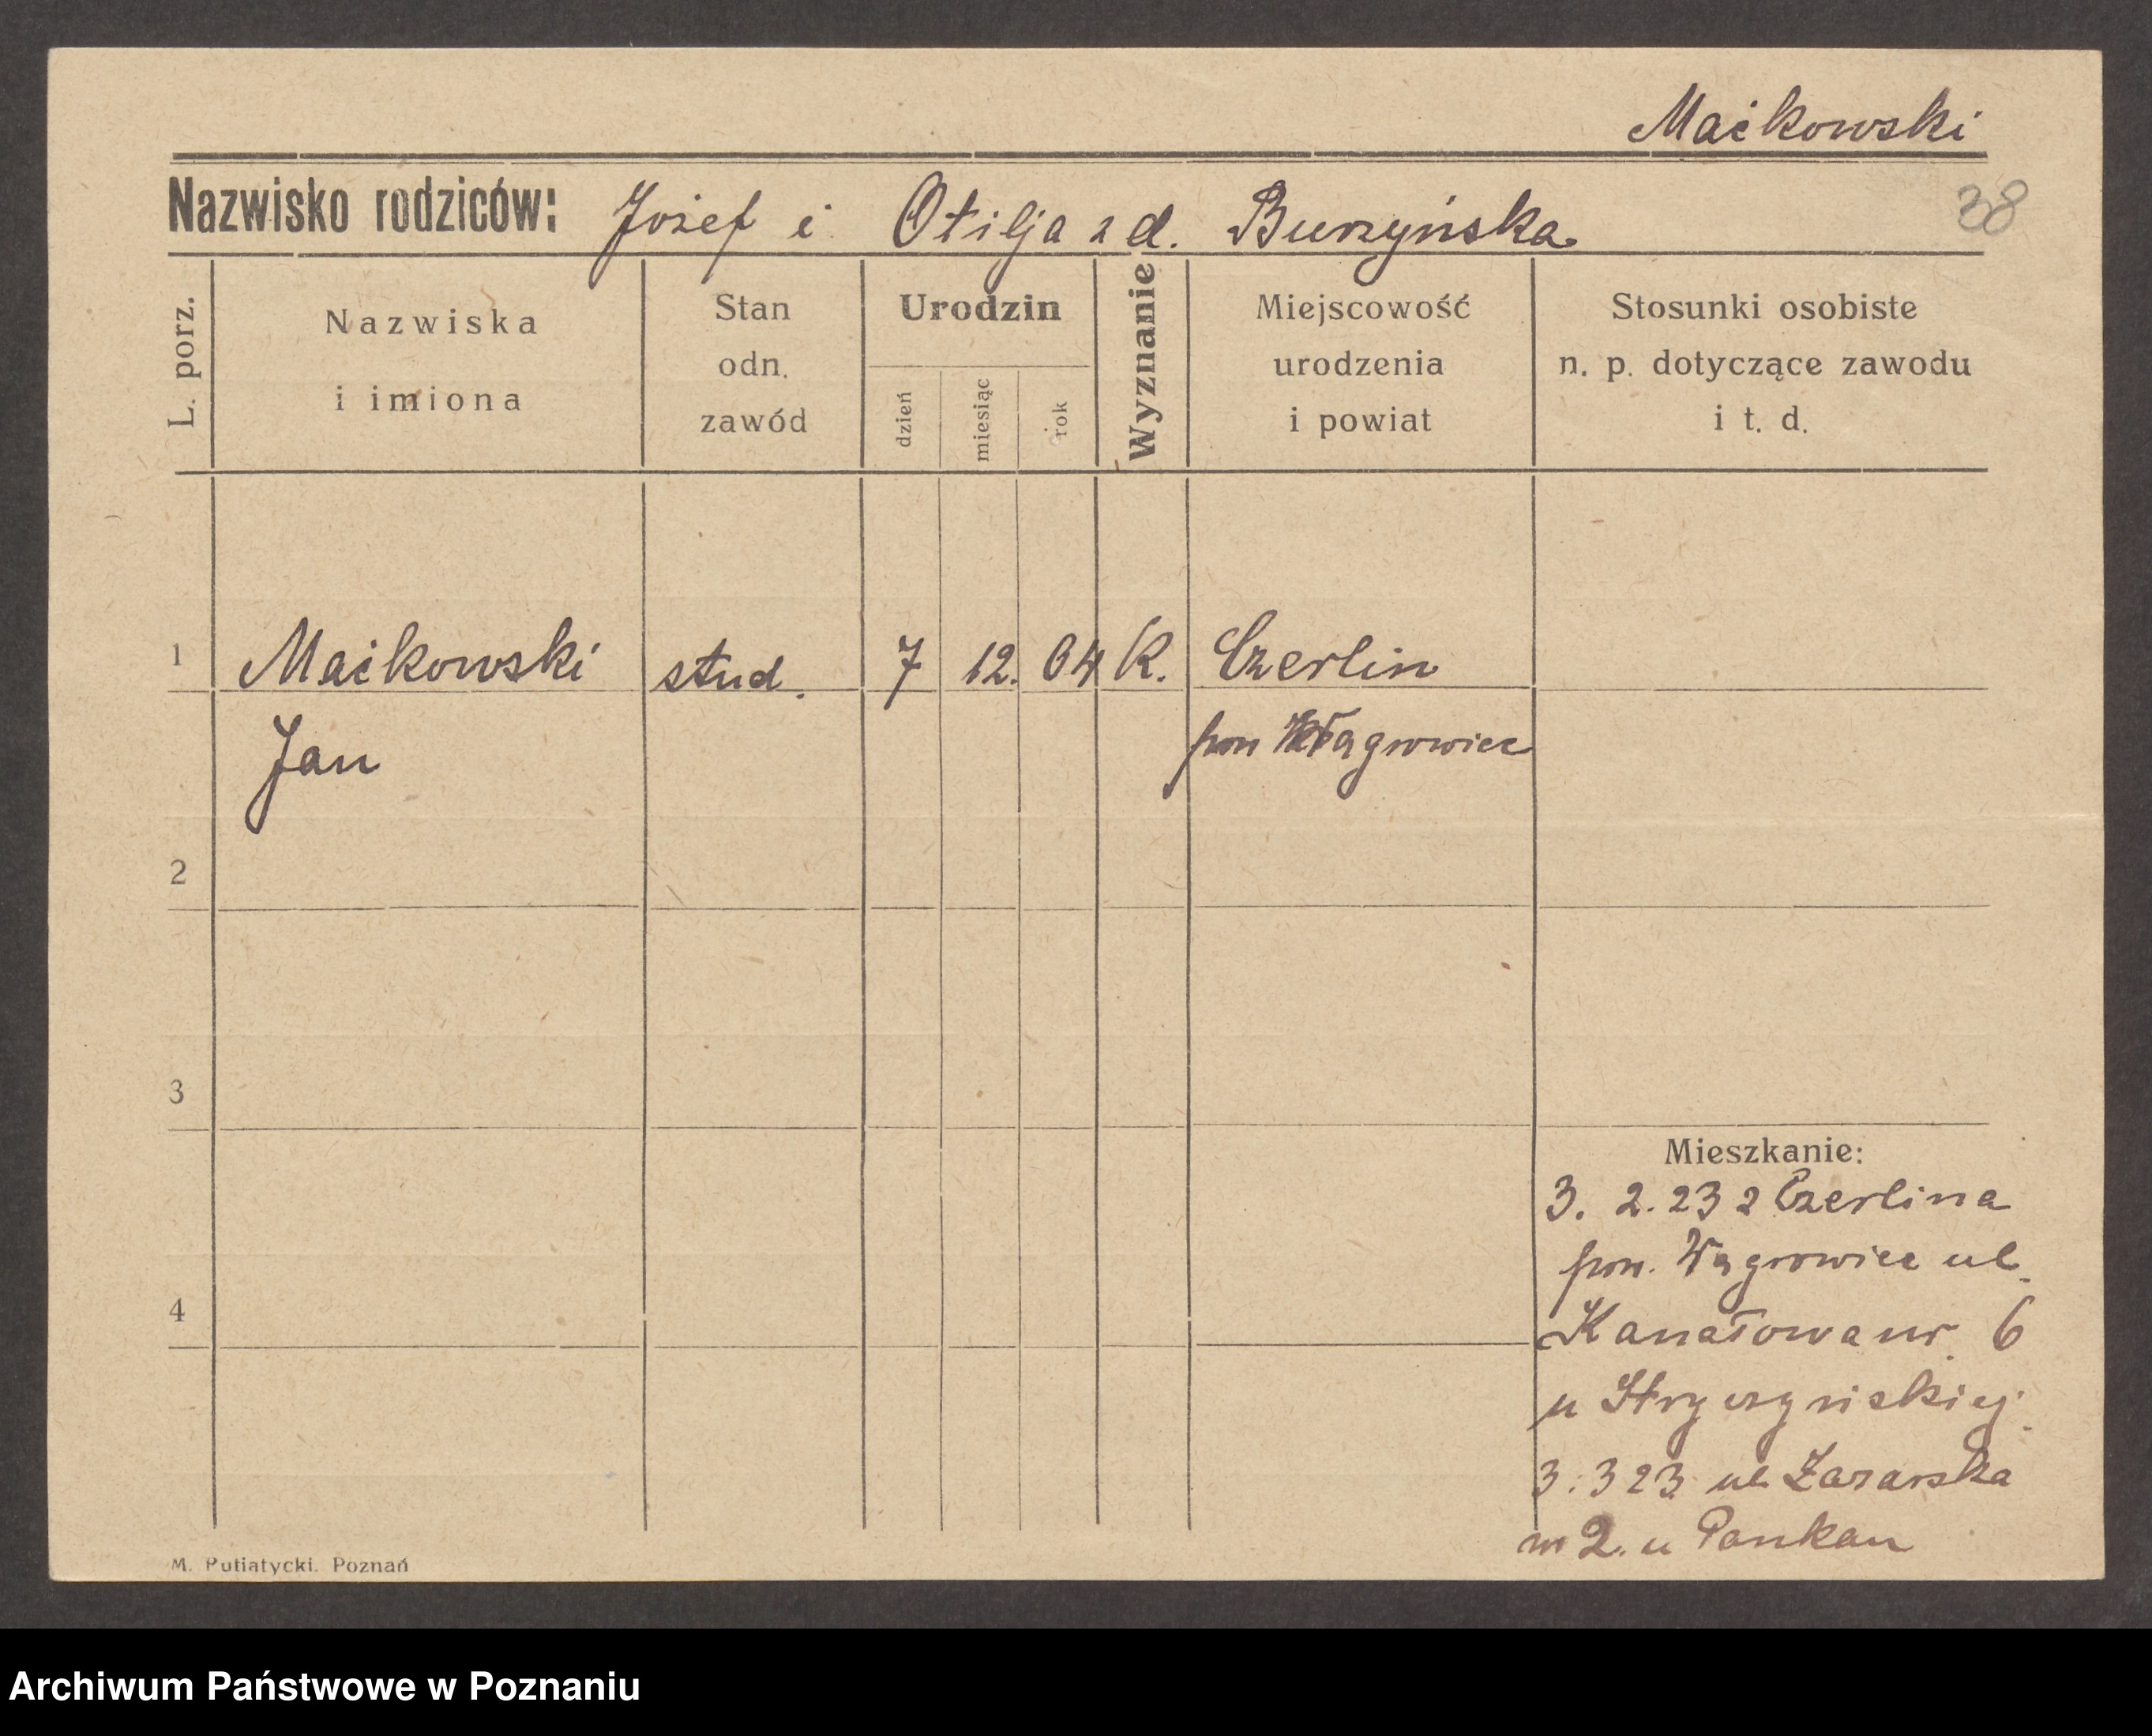 Maćkowski
Nazwisko rodziców: Józef i Otilja z d. Burzyńska
38
L. porz.
Nazwiska
i imiona
Stan
odn.
zawód
Urodzin
dzień
miesiąc
rok
Wyznanie
Miejscowość
urodzenia
i powiat
Stosunki osobiste
n. p. dotyczące zawodu
i t. d.
1 Maćkowski stud. 7 12. 04 K. Czerlin
Jan pow Wągrowiec
2
3
4
Mieszkanie:
3. 2. 23 z Czerlina
pow. Wągrowiec ul.
Kanałowa nr. 6
u Stryczyńskiej.
3. 3 23 ul.
m 2. u
M. Putiatycki. Poznań
Archiwum Państwowe w Poznaniu